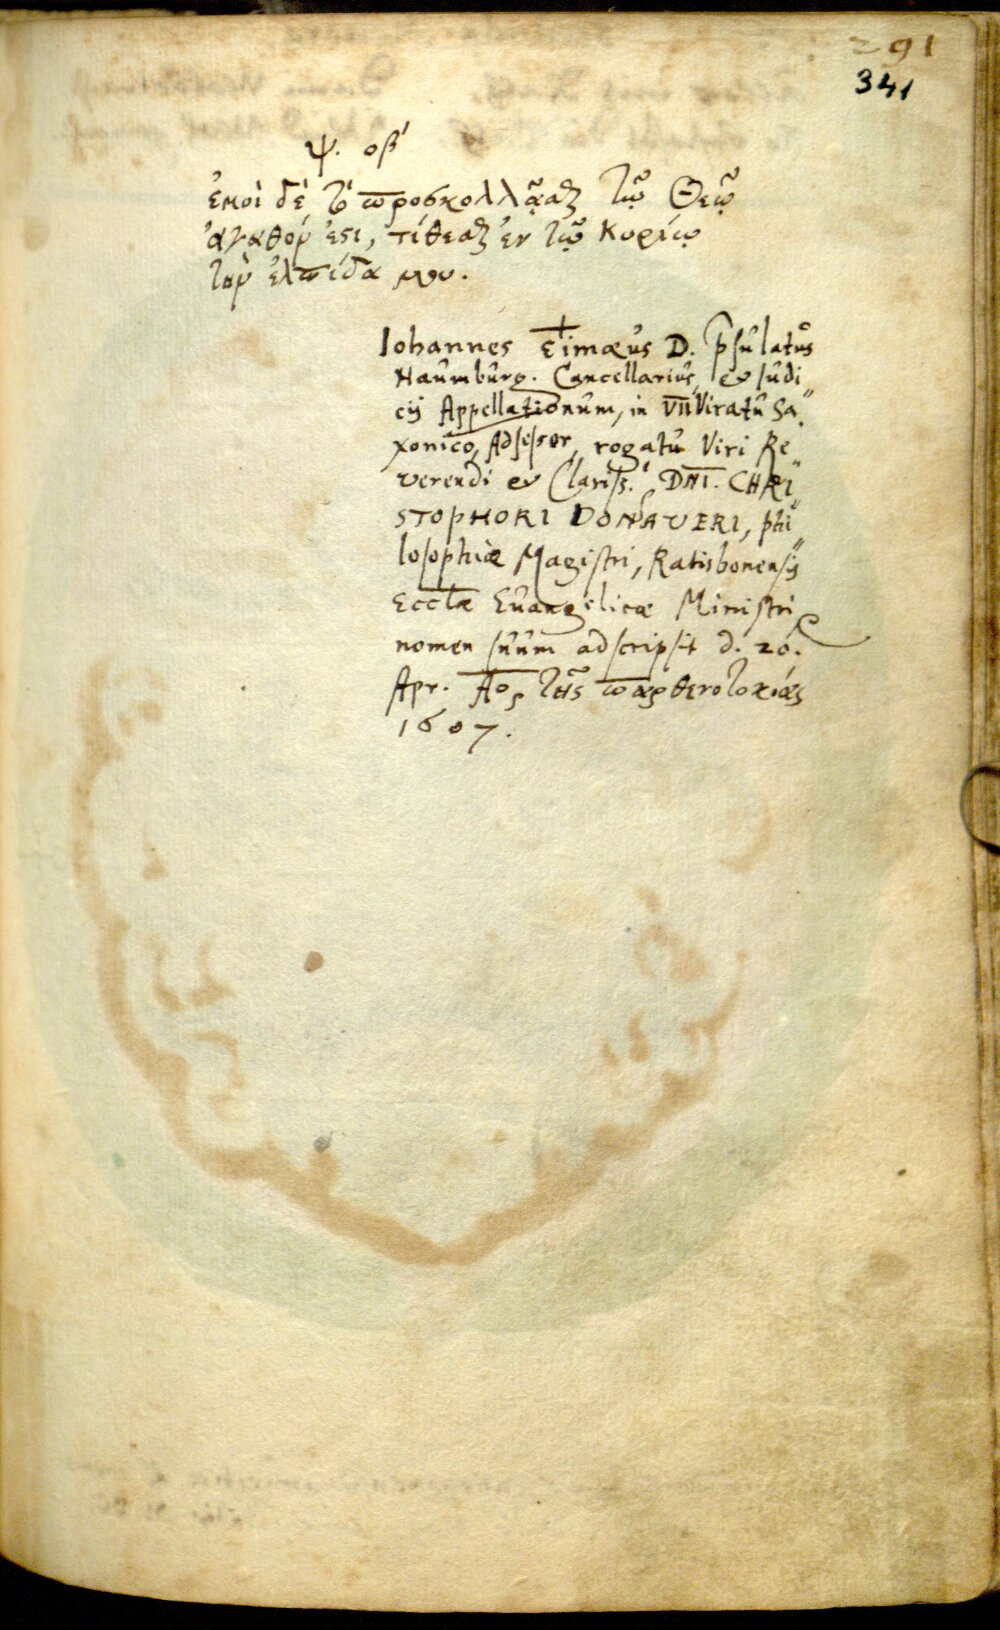 291
341
ψ. οβ'
ἐμοὶ δὲ τὸ προσκολλᾶσθαι τῷ Θεῷ
ἀγαθόν ἐστι, τίθεσθαι ἐν τῷ Κυρίῳ
τὴν ἐλπίδα μου.
Iohannes Timæus D. p̄sulatus
Naumburg. Cancellarius, et Iudi
cij Appellationum, in VII Viratu Sa
xonico, Adsessor, rogatu Viri Re
verendi et Clariss. DNI. CHRI
STOPHORI DONAVERI, phi
losophiæ Magistri, Ratisbonensis
Eccłæ Euangelicæ Ministri
nomen suum adscripsit d. 20.
Apr. Ao τῆς παρθενοτοκίας
1607.